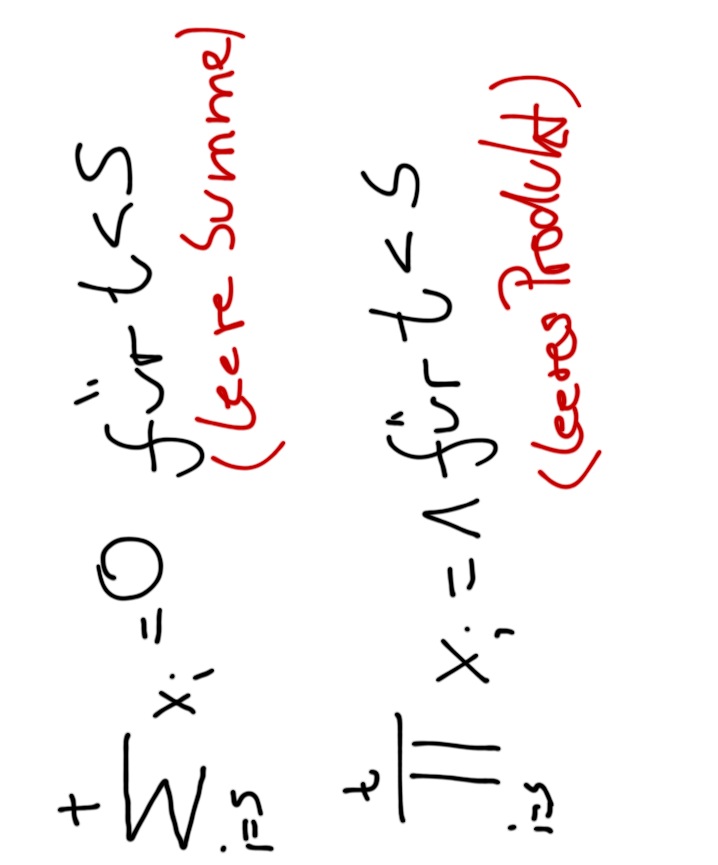 t
∑ xᵢ = 0 für t < s
i=s
(leere Summe)
t
∏ xᵢ = 1 für t < s
i=s
(leeres Produkt)